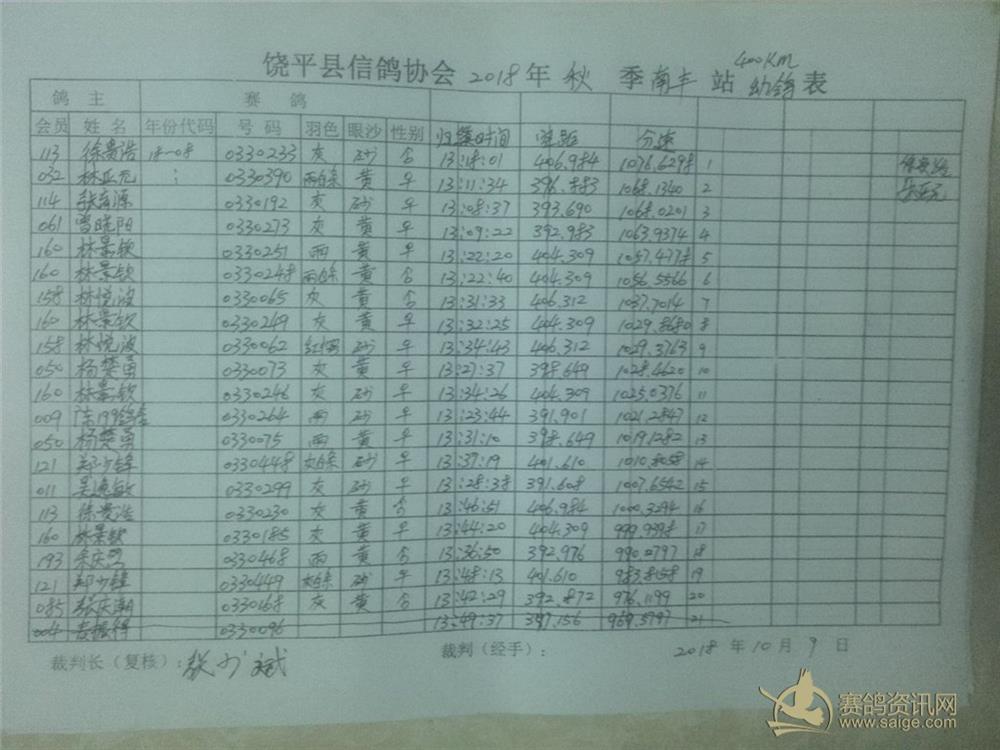 400Km
饶平县信鸽协会 2018 年 秋 季 南丰 站 幼鸽 表
鸽 主 赛 鸽
会员 姓 名 年份代码 号 码 羽色 眼沙 性别 归巢时间 空距 分速
113 徐贵浩 18-08 0330233 灰 砂 合 13:18:01 406.984 1076.6298 1
032 林正元 : 0330390 雨白条 黄 早 13:11:34 396.883 1068.1340 2
114 0330192 灰 砂 早 13:08:37 393.690 1068.0201 3
061 曾晓阳 0330273 灰 黄 早 13:09:22 392.983 1063.9374 4
160 林景钦 0330251 雨 黄 早 13:22:20 404.309 1057.4778 5
160 林景钦 0330248 雨白条 黄 合 13:22:40 404.309 1056.5566 6
158 林悦波 0330065 灰 黄 合 13:31:33 406.312 1037.7014 7
160 林景钦 0330249 灰 黄 早 13:32:25 404.309 1029.8680 8
158 林悦波 0330062 砂 早 13:34:43 406.312 1029.3763 9
050 杨楚勇 0330073 灰 黄 早 13:27:37 398.649 1028.4620 10
160 林景钦 0330246 灰 砂 早 13:34:26 404.309 1025.0376 11
009 0330264 雨 砂 早 13:23:44 391.901 1021.2847 12
050 杨楚勇 0330075 雨 黄 早 13:31:10 398.649 1019.1282 13
121 郑少锋 0330448 灰白条 砂 早 13:37:19 401.610 1010.8058 14
011 吴逸敏 0330299 灰 砂 早 13:28:38 391.608 1007.6542 15
113 徐贵浩 0330230 灰 黄 合 13:46:51 406.984 1000.3294 16
160 林景钦 0330185 灰 黄 早 13:44:20 404.309 999.9398 17
193 0330468 雨 黄 合 13:36:50 392.976 990.0797 18
121 郑少锋 0330449 灰白条 砂 早 13:48:13 401.610 983.8158 19
085 张庆潮 0330168 灰 黄 合 13:42:29 392.872 976.1199 20
004 0330096 13:49:37 397.156 969.5797 21
裁判长（复核）： 张少斌 裁判（经手）： 2018 年 10 月 9 日
赛鸽资讯网
www.saige.com